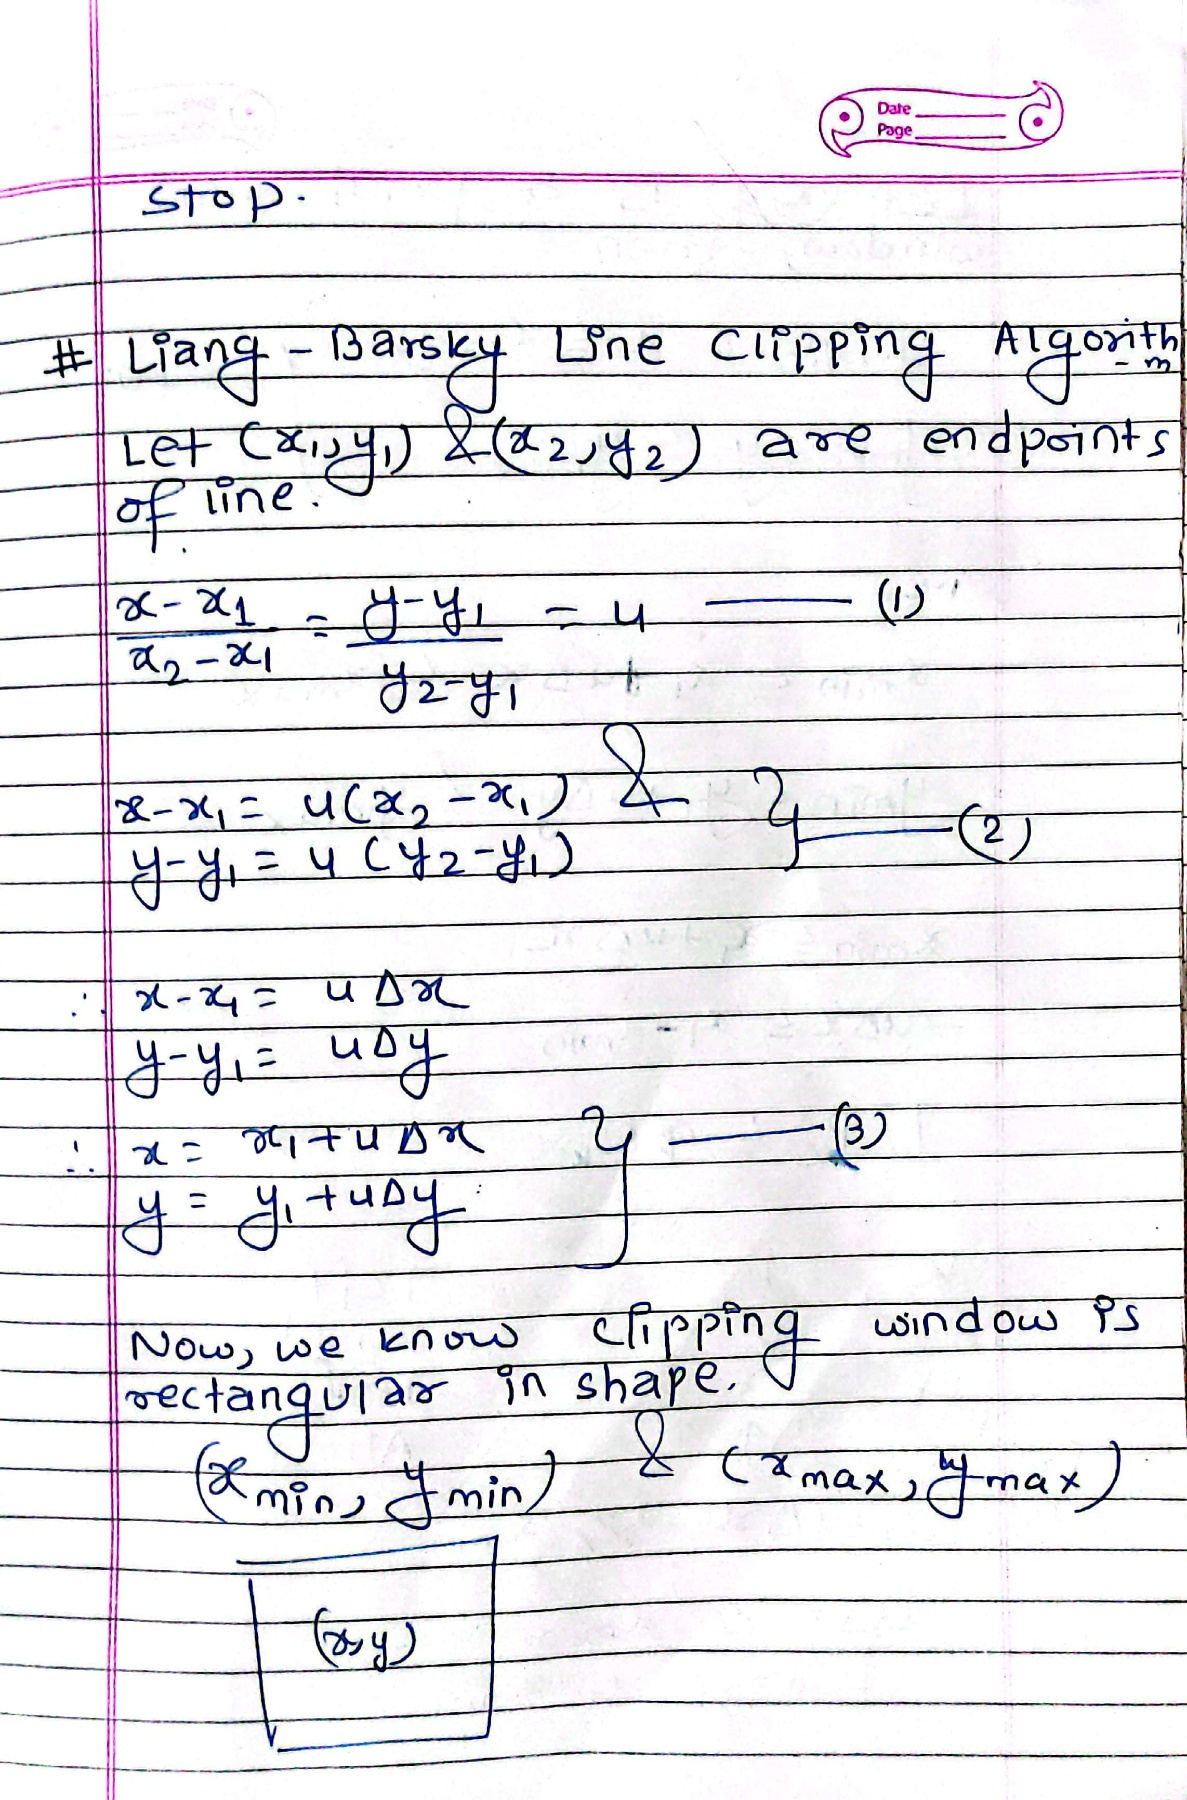 Date
Page
stop.
# Liang-Barsky Line Clipping Algorith
-m
Let (x₁, y₁) & (x₂, y₂) are endpoints
of line.
x-x₁ / x₂-x₁ = y-y₁ / y₂-y₁ = u —— (1)
x-x₁ = u(x₂-x₁) & } —— (2)
y-y₁ = u(y₂-y₁)
∴ x-x₁ = uΔx
y-y₁ = uΔy
∴ x = x₁+uΔx } —— (3)
y = y₁+uΔy
Now, we know clipping window is
rectangular in shape.
(x min, y min) & (x max, y max)
(x, y)